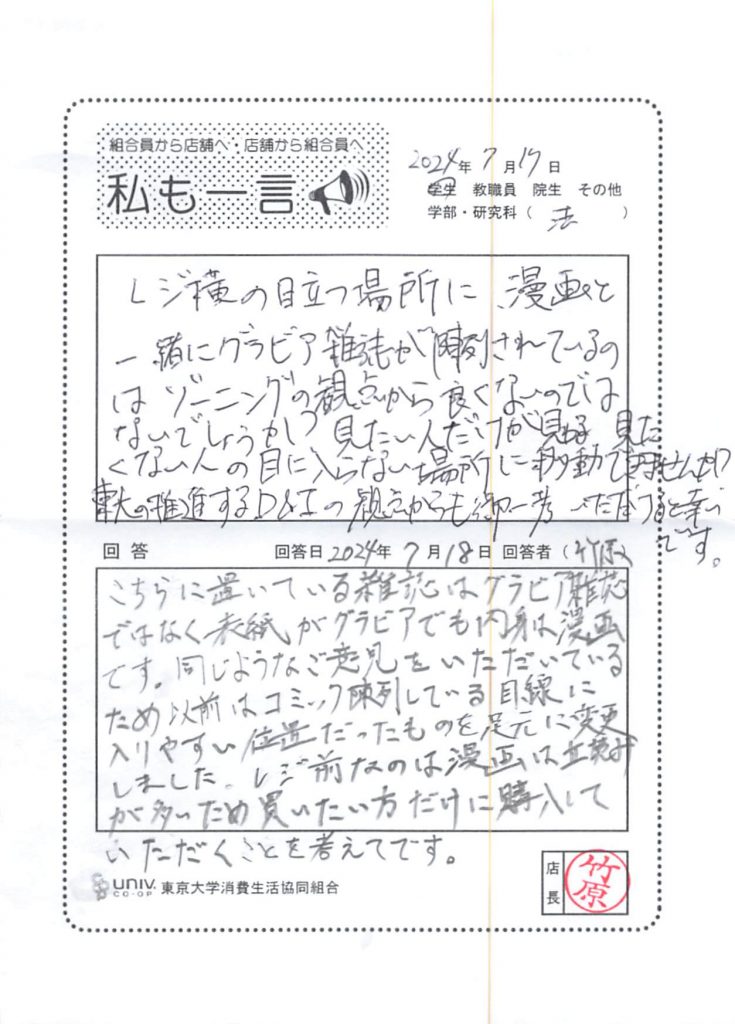 組合員から店舗へ・店舗から組合員へ
私も一言
2024年7月17日
学生 教職員 院生 その他
学部・研究科（ 法 ）
レジ横の目立つ場所に、漫画と
一緒にグラビア雑誌が陳列されているの
はゾーニングの観点から良くないのでは
ないでしょうか？見たい人だけが見れる、見た
くない人の目に入らない場所に移動できませんか？
東大の推進するD&Iの観点からも御一考いただけると幸い
です。
回答 回答日2024年7月18日 回答者（竹原）
こちらに置いている雑誌はグラビア雑誌
ではなく表紙がグラビアでも内身は漫画
です。同じようなご意見をいただいている
ため以前はコミック陳列している目線に
入りやすい位置だったものを足元に変更
しました。レジ前なのは漫画は立読み
が多いため買いたい方だけに購入して
いただくことを考えてです。
UNIV. CO-OP 東京大学消費生活協同組合
店長 竹原